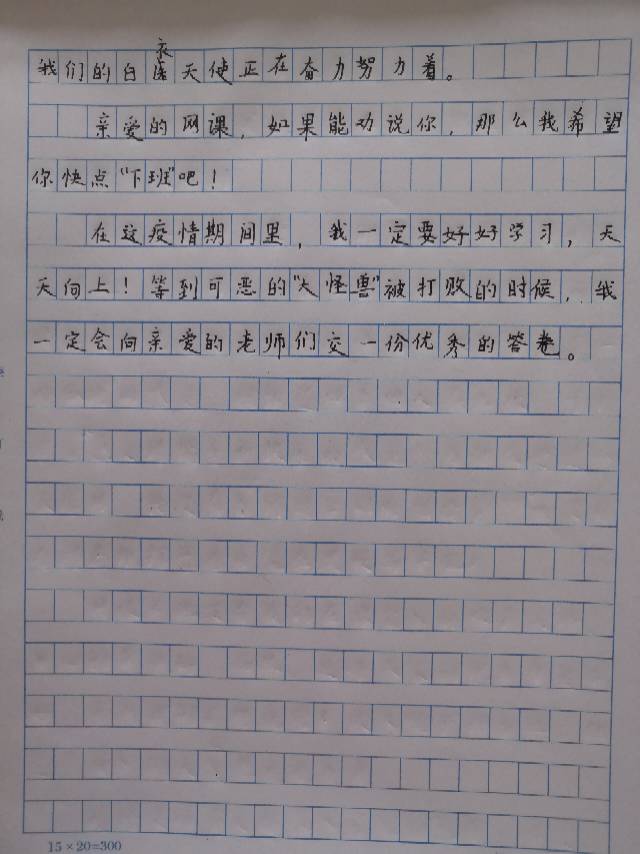 我们的白衣天使正在奋力努力着。
亲爱的网课，如果能劝说你，那么我希望
你快点“下班”吧！
在这疫情期间里，我一定要好好学习，天
天向上！等到可恶的“大怪兽”被打败的时候，我
一定会向亲爱的老师们交一份优秀的答卷。
15×20=300